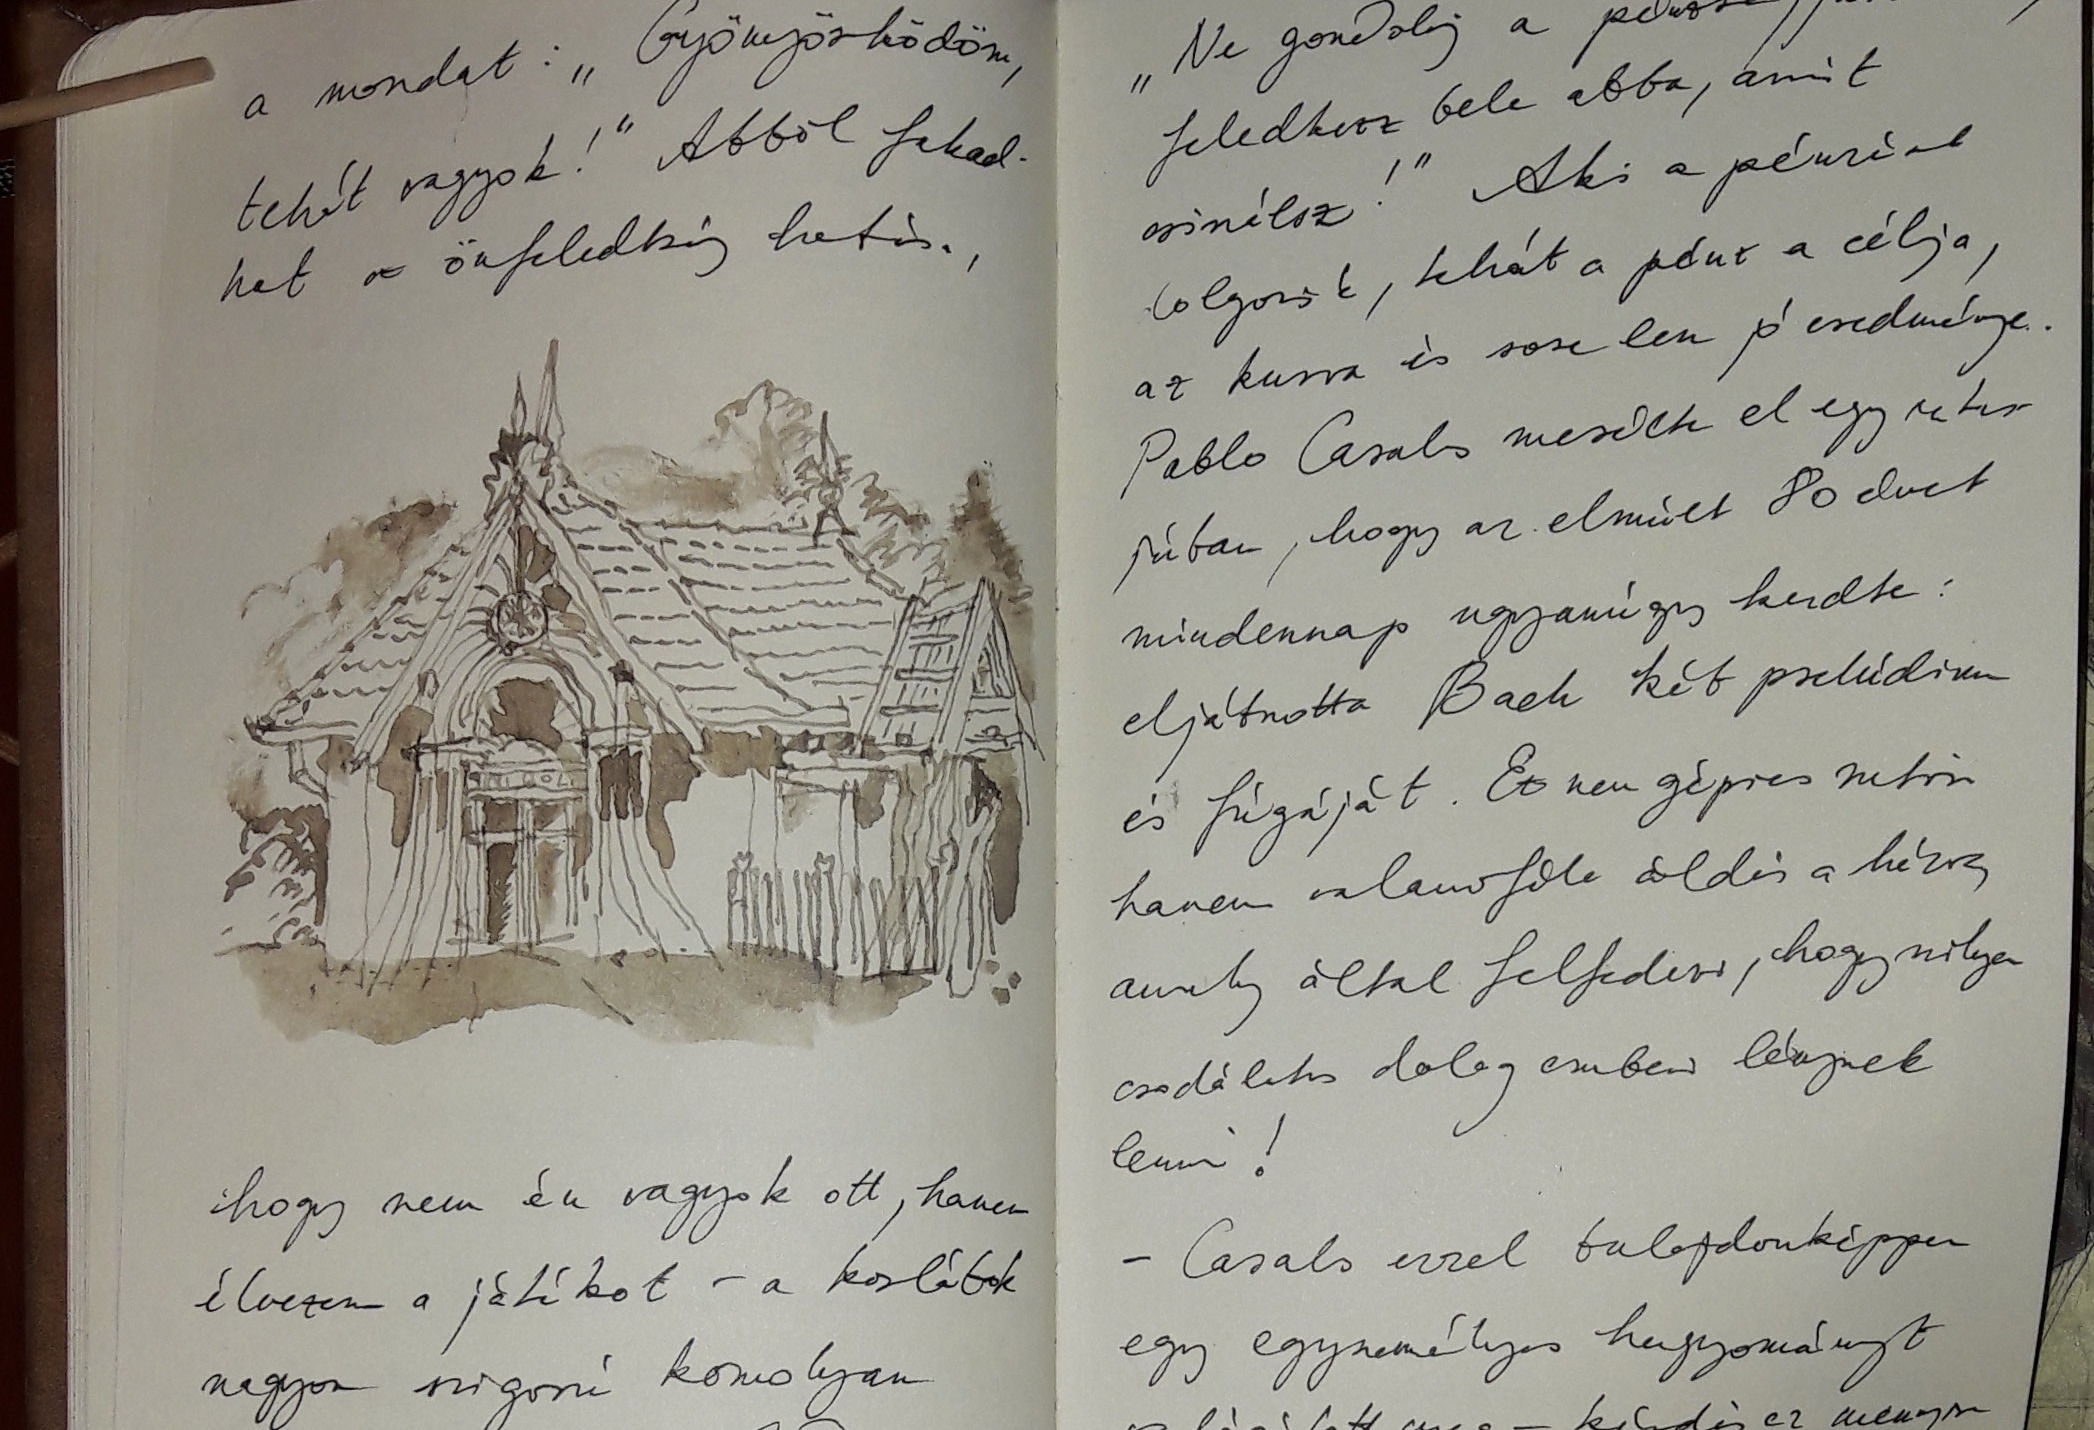 a mondat: „Gyönyörködöm,
tehát vagyok!" Abból fakad-
hat az önfeledtség hatás.,
hogy nem én vagyok ott, hanem
élvezem a játékot - a korlátok
nagyon szigorú komolyan
„Ne gondolj a
feledkezz bele abba, amit
csinálsz!" Aki a pénzért
dolgozik, tehát a pénz a célja,
az kurva és sose lesz jó eredménye.
Pablo Casals mesélte el egy
hogy az elmúlt 80 évet
mindennap ugyanúgy kezdte:
eljátszotta Bach két prelúdium
és fúgáját. Ez nem gépies rutin
hanem valamiféle áldás a házra,
amely által felfedezi, hogy milyen
csodálatos dolog emberi lénynek
lenni!
- Casals ezzel tulajdonképpen
egy egyszemélyes hagyományt
meg - kérdés ez mennyire